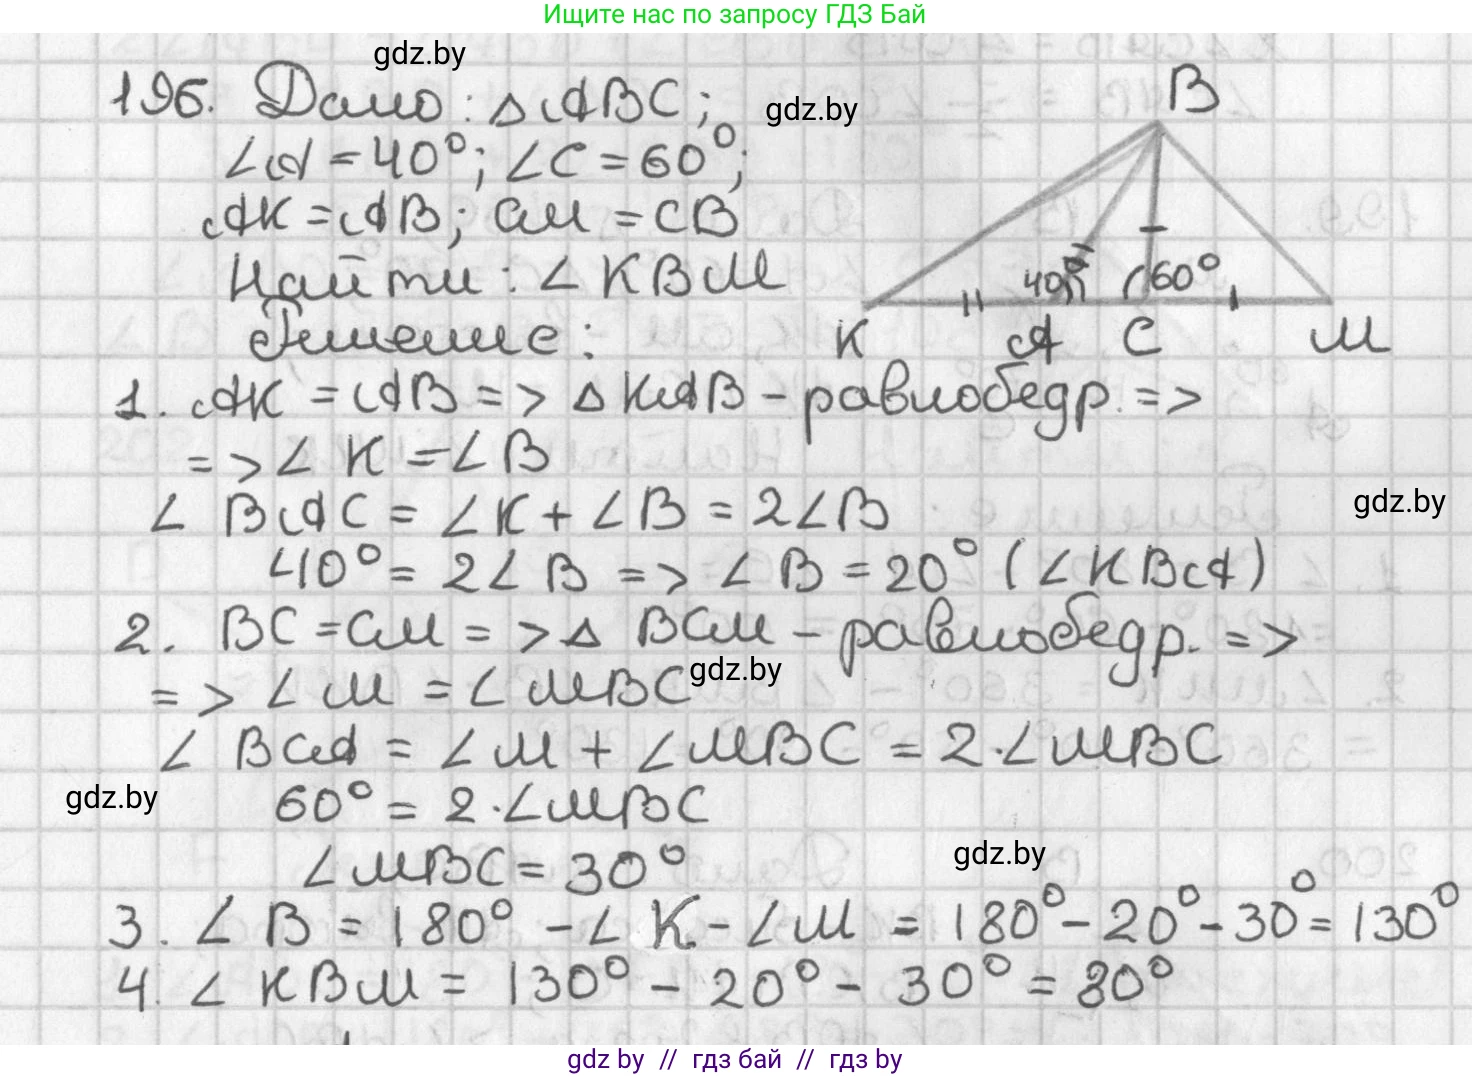 Ищите нас по запросу ГДЗ Бай
gdz.by
196. Дано: △ABC;
gdz.by
∠A = 40°; ∠C = 60°;
AK = AB; CM = CB
Найти: ∠KBM
Решение:
B
40° 60°
K A C M
1. AK = AB => △KAB - равнобедр. =>
=> ∠K = ∠B
∠BAC = ∠K + ∠B = 2∠B
gdz.by
40° = 2∠B => ∠B = 20° (∠KBA)
2. BC = CM => △BCM - равнобедр. =>
gdz.by
=> ∠M = ∠MBC
∠BCA = ∠M + ∠MBC = 2·∠MBC
gdz.by
60° = 2·∠MBC
∠MBC = 30°
gdz.by
3. ∠B = 180° - ∠K - ∠M = 180° - 20° - 30° = 130°
4. ∠KBM = 130° - 20° - 30° = 80°
gdz by // гдз бай // гдз by